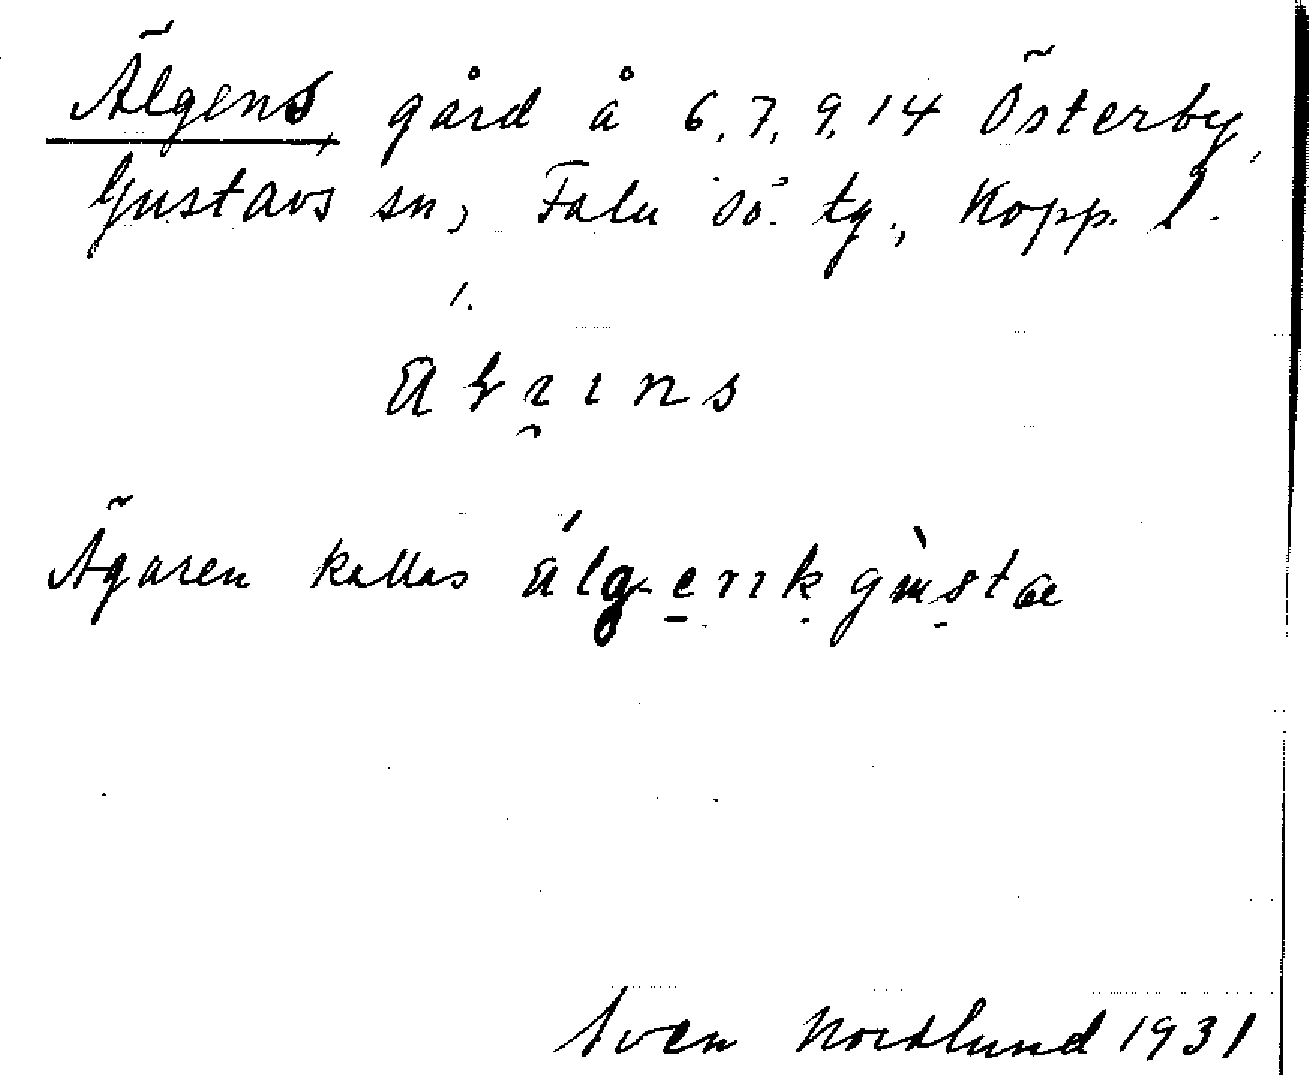 Älgens, gård å 6, 7, 9, 14 Österby,
Gustavs sn, Falu sö. tg., Kopp. l.
1.
Ägaren kallas
Sven Nordlund 1931